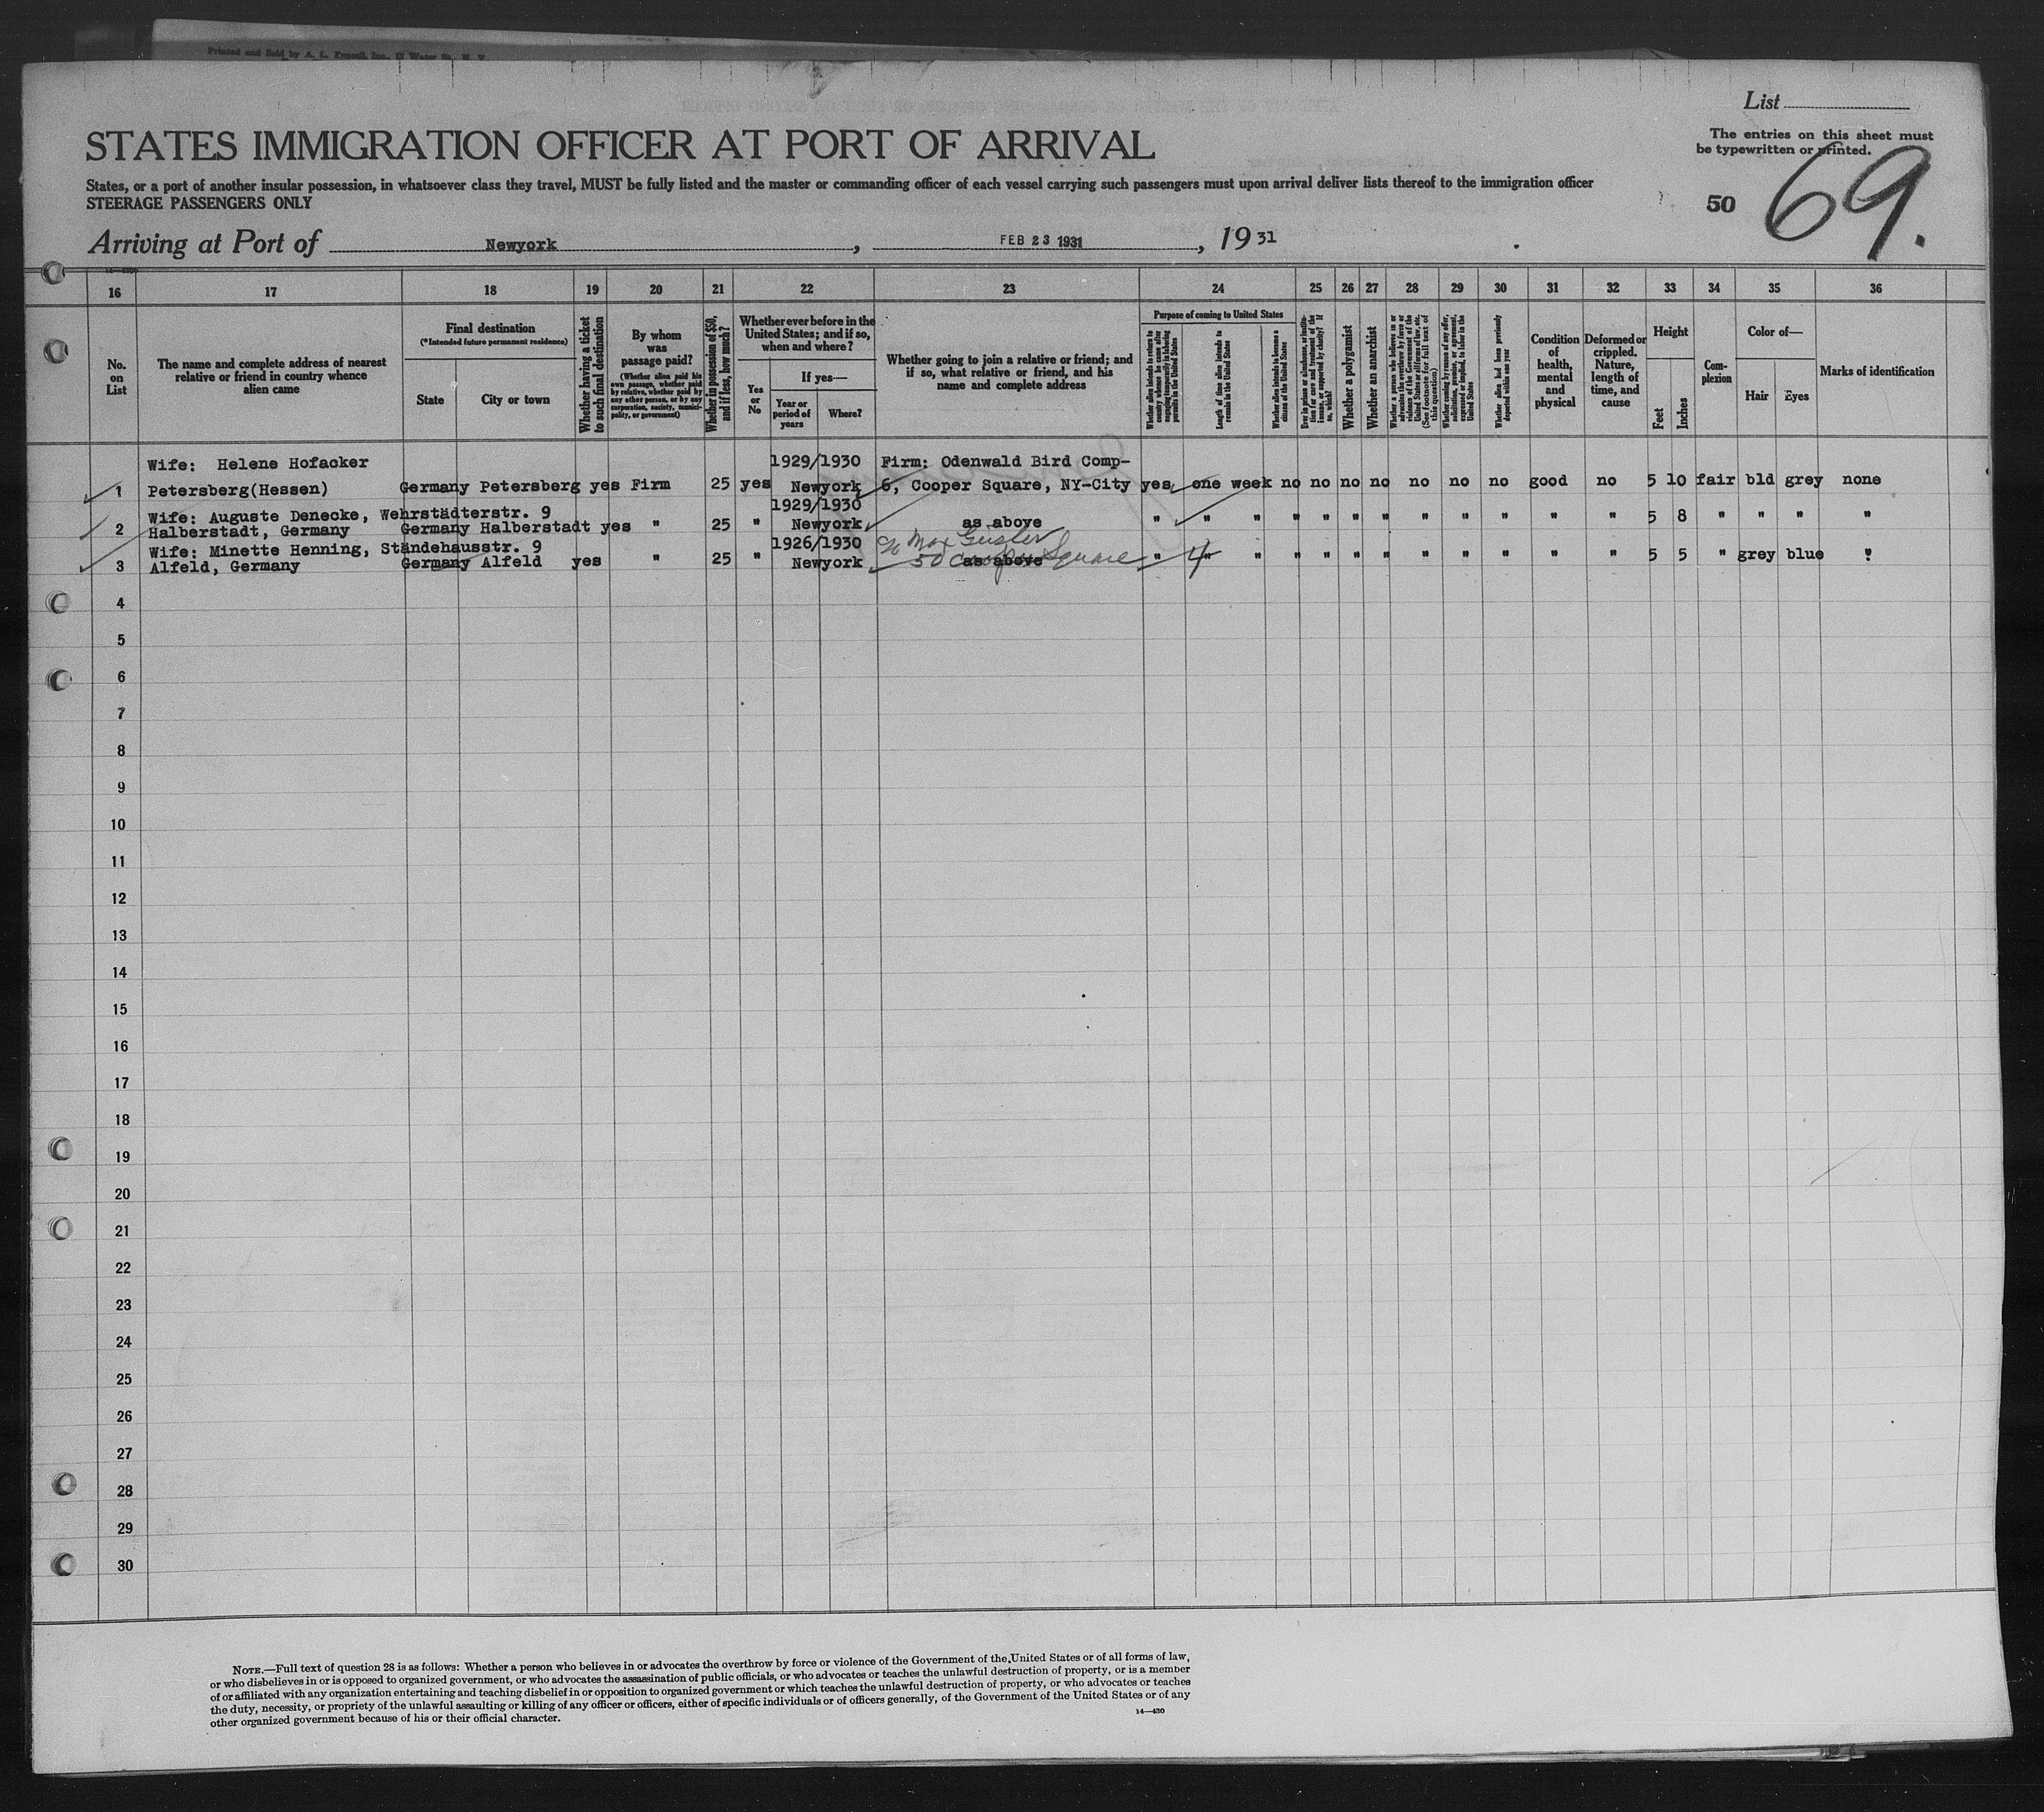 Printed and Sold by A. L. Russell, Inc., 51 Water St., N. Y.
List
The entries on this sheet must
be typewritten or printed.
STATES IMMIGRATION OFFICER AT PORT OF ARRIVAL
States, or a port of another insular possession, in whatsoever class they travel, MUST be fully listed and the master or commanding officer of each vessel carrying such passengers must upon arrival deliver lists thereof to the immigration officer
STEERAGE PASSENGERS ONLY
50
69.
Arriving at Port of Newyork, FEB 23 1931, 19 31
14—430
16 17 18 19 20 21 22 23 24 25 26 27 28 29 30 31 32 33 34 35 36
No. on List
The name and complete address of nearest relative or friend in country whence alien came
Final destination
(*Intended future permanent residence)
State
City or town
Whether having a ticket to such final destination
By whom was passage paid?
(Whether alien paid his own passage, whether paid by relative, whether paid by any other person, or by any corporation, society, municipality, or government)
Whether in possession of $50, and if less, how much?
Whether ever before in the United States; and if so, when and where?
Yes or No
If yes—
Year or period of years
Where?
Whether going to join a relative or friend; and if so, what relative or friend, and his name and complete address
Purpose of coming to United States
Whether alien intends to return to country whence he came after engaging temporarily in laboring pursuits in the United States
Length of time alien intends to remain in the United States
Whether alien intends to become a citizen of the United States
Ever in prison or almshouse, or institution for care and treatment of the insane, or supported by charity? If so, which?
Whether a polygamist
Whether an anarchist
Whether a person who believes in or advocates the overthrow by force or violence of the Government of the United States or all forms of law, etc. (See footnote for full text of this question)
Whether coming by reason of any offer, solicitation, promise, or agreement, expressed or implied, to labor in the United States
Whether alien had been previously deported within one year
Condition of health, mental and physical
Deformed or crippled. Nature, length of time, and cause
Height
Feet
Inches
Complexion
Color of—
Hair
Eyes
Marks of identification
Wife: Helene Hofacker 1929/1930 Firm: Odenwald Bird Comp-
1 Petersberg(Hessen) Germany Petersberg yes Firm 25 yes Newyork 6, Cooper Square, NY-City yes one week no no no no no no no good no 5 10 fair bld grey none
Wife: Auguste Denecke, Wehrstädterstr. 9 1929/1930
2 Halberstadt, Germany Germany Halberstadt yes " 25 " Newyork as above " " " " " " " " " " " " 5 8 " " " "
Wife: Minette Henning, Ständehausstr. 9 1926/1930 c/o Max Geisler
3 Alfeld, Germany Germany Alfeld yes " 25 " Newyork as above 50 Cooper Square " 4 " " " " " " " " " " " 5 5 " grey blue "
4
5
6
7
8
9
10
11
12
13
14
15
16
17
18
19
20
21
22
23
24
25
26
27
28
29
30
NOTE.—Full text of question 28 is as follows: Whether a person who believes in or advocates the overthrow by force or violence of the Government of the United States or of all forms of law,
or who disbelieves in or is opposed to organized government, or who advocates the assassination of public officials, or who advocates or teaches the unlawful destruction of property, or is a member
of or affiliated with any organization entertaining and teaching disbelief in or opposition to organized government or which teaches the unlawful destruction of property, or who advocates or teaches
the duty, necessity, or propriety of the unlawful assaulting or killing of any officer or officers, either of specific individuals or of officers generally, of the Government of the United States or of any
other organized government because of his or their official character.
14—430